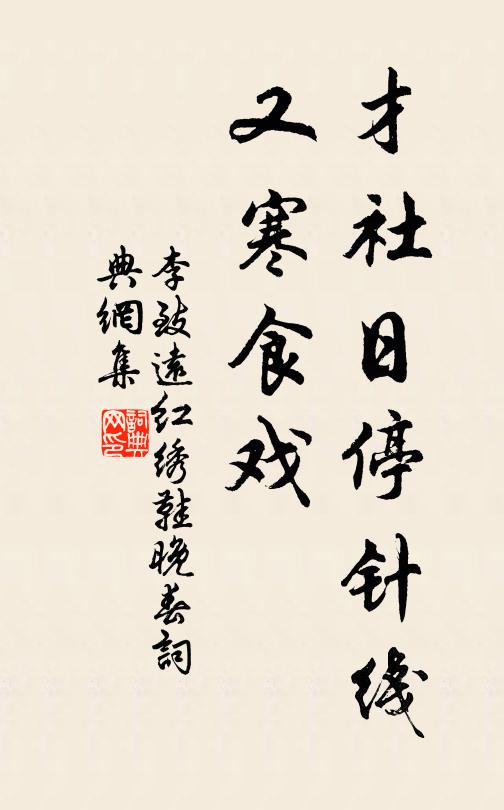 才社日停针线
又寒食戏
李致遠红绣鞋晚春詞
典網集
詞典
网印